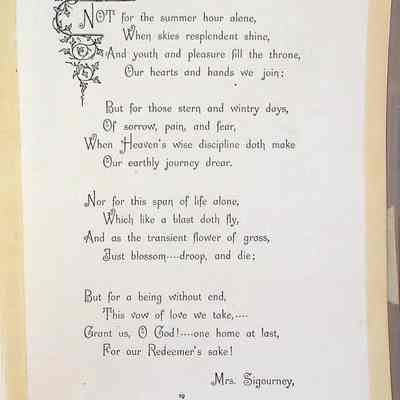 NOT for the summer hour alone,
When skies resplendent shine,
And youth and pleasure fill the throne,
Our hearts and hands we join;
But for those stern and wintry days,
Of sorrow, pain, and fear,
When Heaven's wise discipline doth make
Our earthly journey drear.
Nor for this span of life alone,
Which like a blast doth fly,
And as the transient flower of grass,
Just blossom----droop, and die;
But for a being without end,
This vow of love we take,----
Grant us, O God!----one home at last,
For our Redeemer's sake!
Mrs. Sigourney,
19